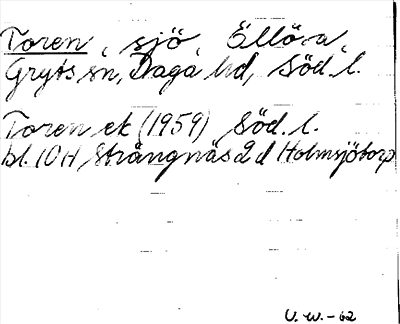 Toren, sjö, Ällö-a,
Gryts sn, Daga hd, Söd. l.
Toren ek (1959) Söd. l.
bl. 10 H Strängnäs 2 d Holmsjötorp
V. W. - 62